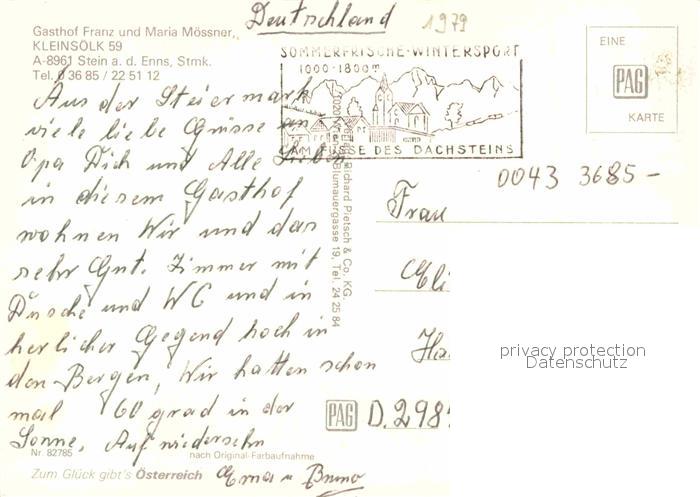 Deutschland
1979
Gasthof Franz und Maria Mössner,
KLEINSÖLK 59
A-8961 Stein a. d. Enns, Stmk.
Tel. 0 36 85 / 22 51 12
SOMMERFRISCHE-WINTERSPORT
1000-1800m
AM FUSSE DES DACHSTEINS
EINE
PAG
KARTE
Aus der Steiermark
viele liebe Grüsse an
Opa Dich und Alle Lieben
in diesem Gasthof
wohnen Wir und das
sehr Gut. Zimmer mit
Dusche und WC und in
herlicher Gegend hoch in
den Bergen, Wir hatten schon
mal 60 grad in der
Sonne, Auf wiedersehn
Erna u Bruno
Richard Pietsch & Co. KG.
Blumauergasse 19, Tel. 24 25 84
0043 3685-
Frau
Eli
Ha
PAG D.298
privacy protection
Datenschutz
Nr. 82785
nach Original-Farbaufnahme
Zum Glück gibt's Österreich